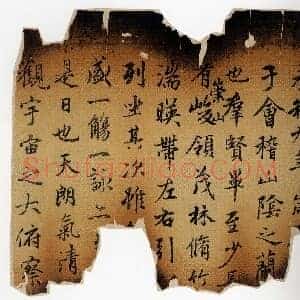 于會稽山陰之蘭
也羣賢畢至少
有崇山峻領茂林脩竹
湍暎帶左右引
列坐其次雖
盛一觴一詠
是日也天朗氣清
觀宇宙之大俯察